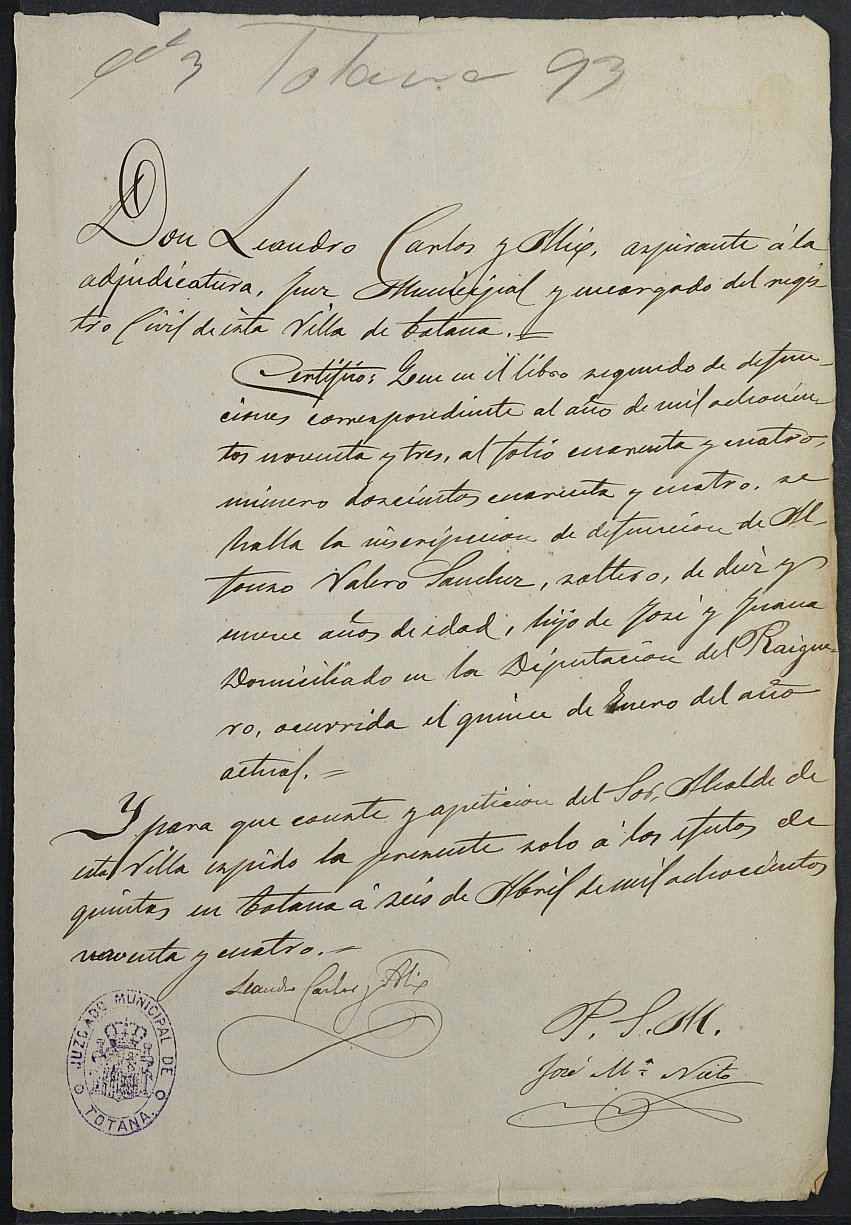 Totana 93
Don Leandro Carlos y Alix, aspirante á la
adjudicatura, Juez Municipal y encargado del regis
tro Civil de esta Villa de Totana.=
Certifico: Que en el libro segundo de defun-
ciones correspondiente al año de mil ochocien-
tos noventa y tres, al folio cuarenta y cuatro,
número doscientos cuarenta y cuatro, se
halla la inscripcion de defuncion de Al-
fonso Valero Sanchez, soltero, de diez y
nueve años de edad, hijo de José y Juana
Domiciliado en la Diputacion del Raigue-
ro, ocurrida el quince de Enero del año
actual.=
Y para que conste y apeticion del Sor. Alcalde de
esta Villa expido la presente solo á los efectos de
quintas en Totana á seis de Abril de mil ochocientos
noventa y cuatro.=
Leandro Carlos y Alix
P. S. M.
José Mª Nieto
JUZGADO MUNICIPAL DE
TOTANA